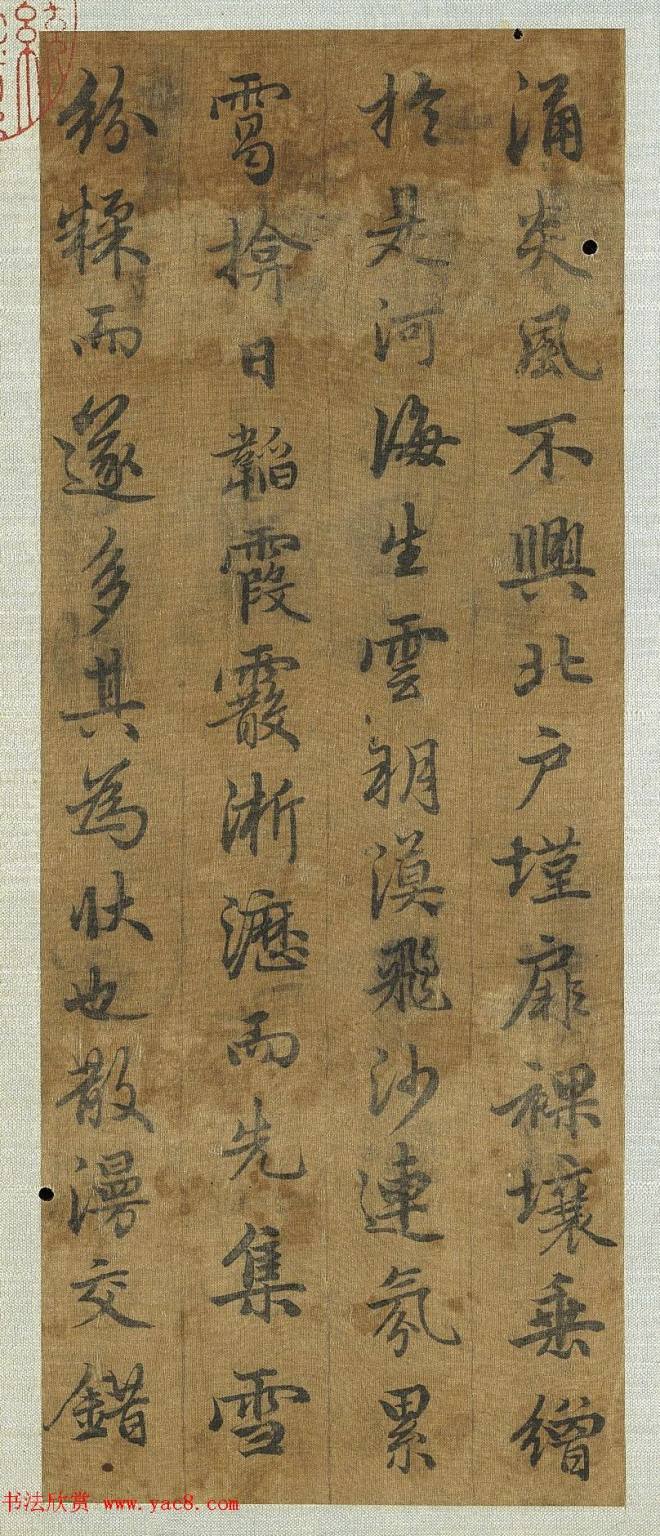 涌炎風不興北户墐扉裸壤垂繒
於是河海生雲朔漠飛沙連氛累
霭揜日韜霞霰淅瀝而先集雪
紛糅而遂多其為狀也散漫交錯
书法欣赏 www.yac8.com